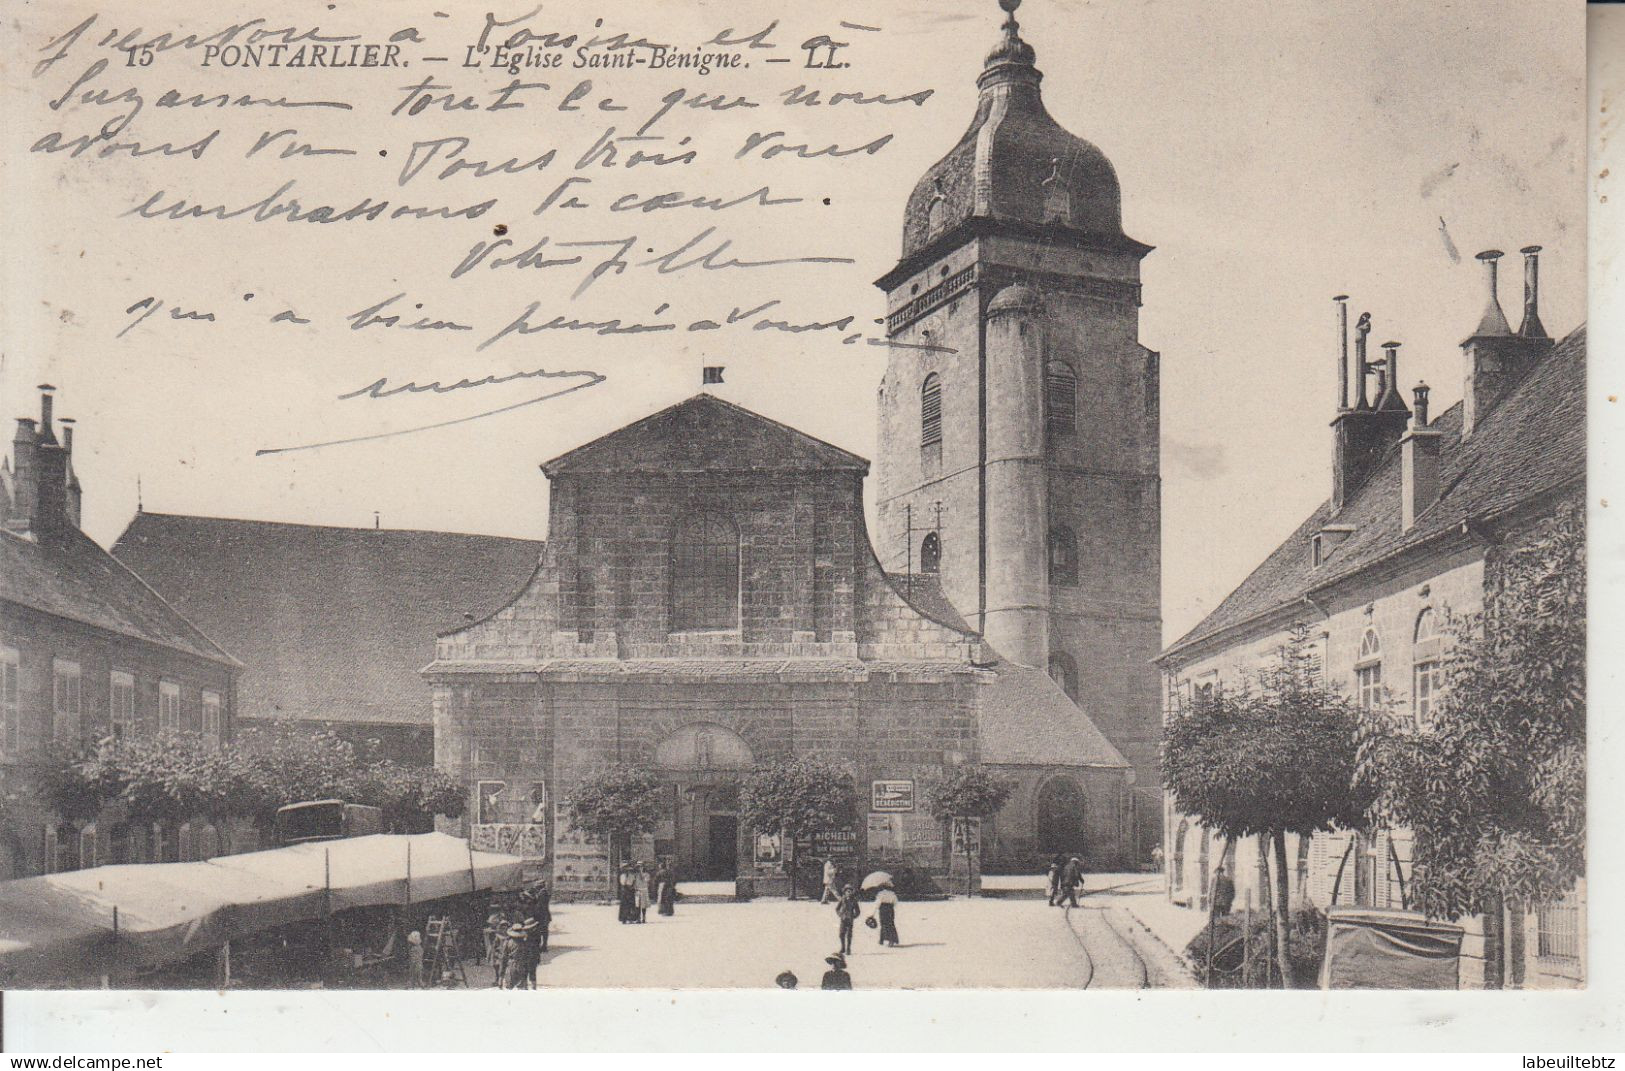 15 PONTARLIER. — L'Eglise Saint-Bénigne. — LL.
J'envoie à Louise et à
Suzanne tout ce que nous
avons vu. Tous trois vous
embrassons de cœur.
Votre fille
qui a bien pensé à vous ici
BÉNÉDICTINE
MICHELIN
Cliquez sur l'image pour l'agrandir
labeuiltebtz